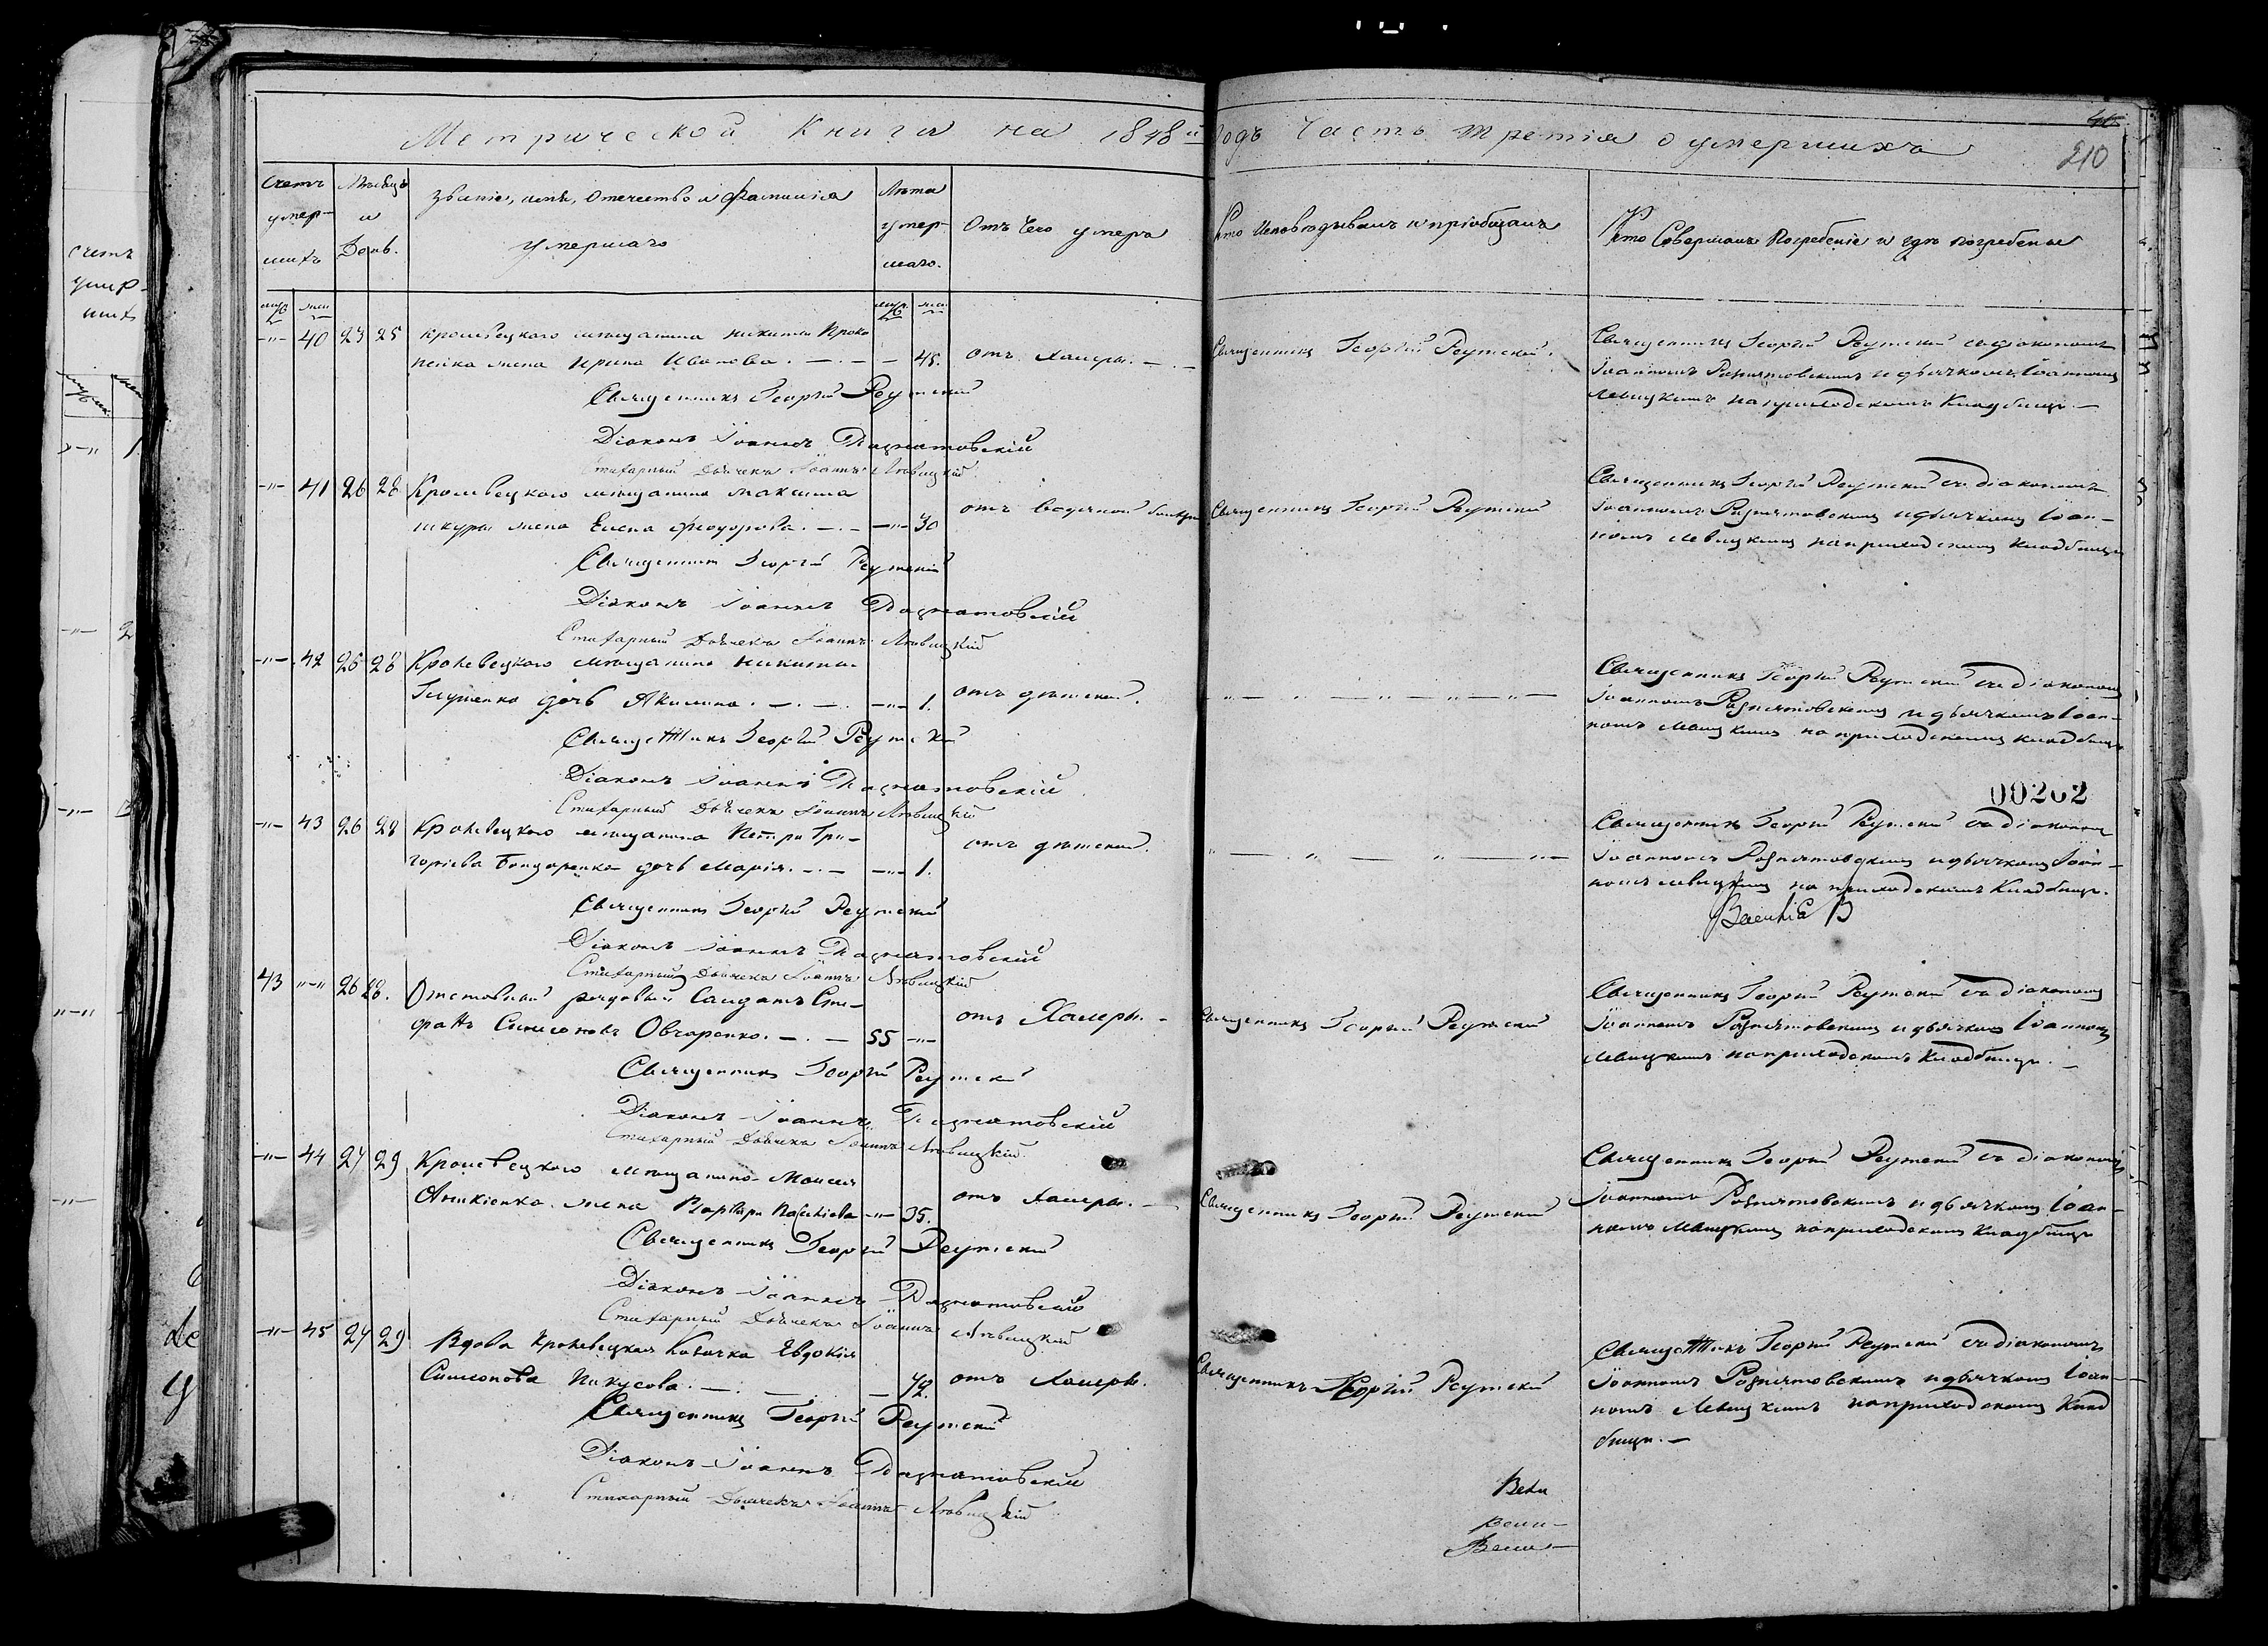 Метрической Книги на 1848й годъ Часть третія о умершихъ
210
Счетъ умершихъ
Мѣсяцъ и День.
Званіе, имя, отечество и фамилія умершаго
Лѣта умершаго.
Отъ чего умеръ
Кто Исповѣдывалъ и пріобщалъ
Кто Совершалъ Погребеніе и гдѣ погребены
муж жен
муж. жен
-"- 40 23 25 Кролевецкого мѣщанина Никиты Проко
пенка жена Ирина Иванова. 45. отъ холеры.
Священникъ Георгій Реутскій.
Священникъ Георгій Реутскій съ діакономъ
Іоанномъ Рознятовскимъ и дьячкомъ Іоанномъ
Левицкимъ на приходскомъ Кладбищѣ
Священникъ Георгій Реутскій
Діаконъ Іоаннъ Рознятовскій
Стихарный Дьячекъ Іоаннъ Левицкій
-"- 41 26 28 Кролевецкого мѣщанина Максима
шкуры жена Елена Феодорова. -"- 30
отъ водяной болѣзни
Священникъ Георгій Реутскій
Священникъ Георгій Реутскій съ діакономъ
Іоанномъ Рознятовскимъ и дьячкомъ Іоан-
номъ Левицкимъ на приходскомъ Кладбищѣ
Священникъ Георгій Реутскій
Діаконъ Іоаннъ Рознятовскій
Стихарный Дьячекъ Іоаннъ Левицкій
-"- 42 26 28 Кролевецкого мѣщанина Никиты
дочь Акилина. -"- 1. отъ дѣтской.
Священникъ Георгій Реутскій съ діакономъ
Іоанномъ Рознятовскимъ и дьячкомъ Іоан-
номъ Левицкимъ на приходскомъ кладбищѣ
Священникъ Георгій Реутскій
Діаконъ Іоаннъ Рознятовскій
Стихарный Дьячекъ Іоаннъ Левицкій
00202
-"- 43 26 28 Кролевецкого мѣщанина Петра Гри-
горіева Бондаренка дочь Марія. -"- 1.
отъ дѣтской.
Священникъ Георгій Реутскій съ діакономъ
Іоанномъ Рознятовскимъ и дьячкомъ Іоан-
номъ Левицкимъ на приходскомъ Кладбищѣ.
Священникъ Георгій Реутскій
Діаконъ Іоаннъ Рознятовскій
Стихарный Дьячекъ Іоаннъ Левицкій
43 "-" 26 28. Отставной рядовый Салдатъ Сте-
фанъ Симеоновъ Овчаренко. 55 -"-
отъ Холеры.
Священникъ Георгій Реутскій
Священникъ Георгій Реутскій съ діакономъ
Іоанномъ Рознятовскимъ и дьячкомъ Іоанномъ
Левицкимъ на приходскомъ Кладбищѣ.
Священникъ Георгій Реутскій
Діаконъ Іоаннъ Рознятовскій
Стихарный Дьячекъ Іоаннъ Левицкій
-"- 44 27 29 Кролевецкого мѣщанина Моисея
жена Варвара -"- 35.
отъ Холеры.
Священникъ Георгій Реутскій
Священникъ Георгій Реутскій съ діакономъ
Іоанномъ Рознятовскимъ и дьячкомъ Іоан-
номъ Левицкимъ на приходскомъ Кладбищѣ
Священникъ Георгій Реутскій
Діаконъ Іоаннъ Рознятовскій
Стихарный Дьячекъ Іоаннъ Левицкій
-"- 45 27 29 Вдова Кролевецкая Козачка Евдокія
Симеонова 72. отъ Холеры.
Священникъ Георгій Реутскій
Священникъ Георгій Реутскій съ діакономъ
Іоанномъ Рознятовскимъ и дьячкомъ Іоан-
номъ Левицкимъ на приходскомъ Клад
бищѣ.
Священникъ Георгій Реутскій
Діаконъ Іоаннъ Рознятовскій
Стихарный Дьячекъ Іоаннъ Левицкій